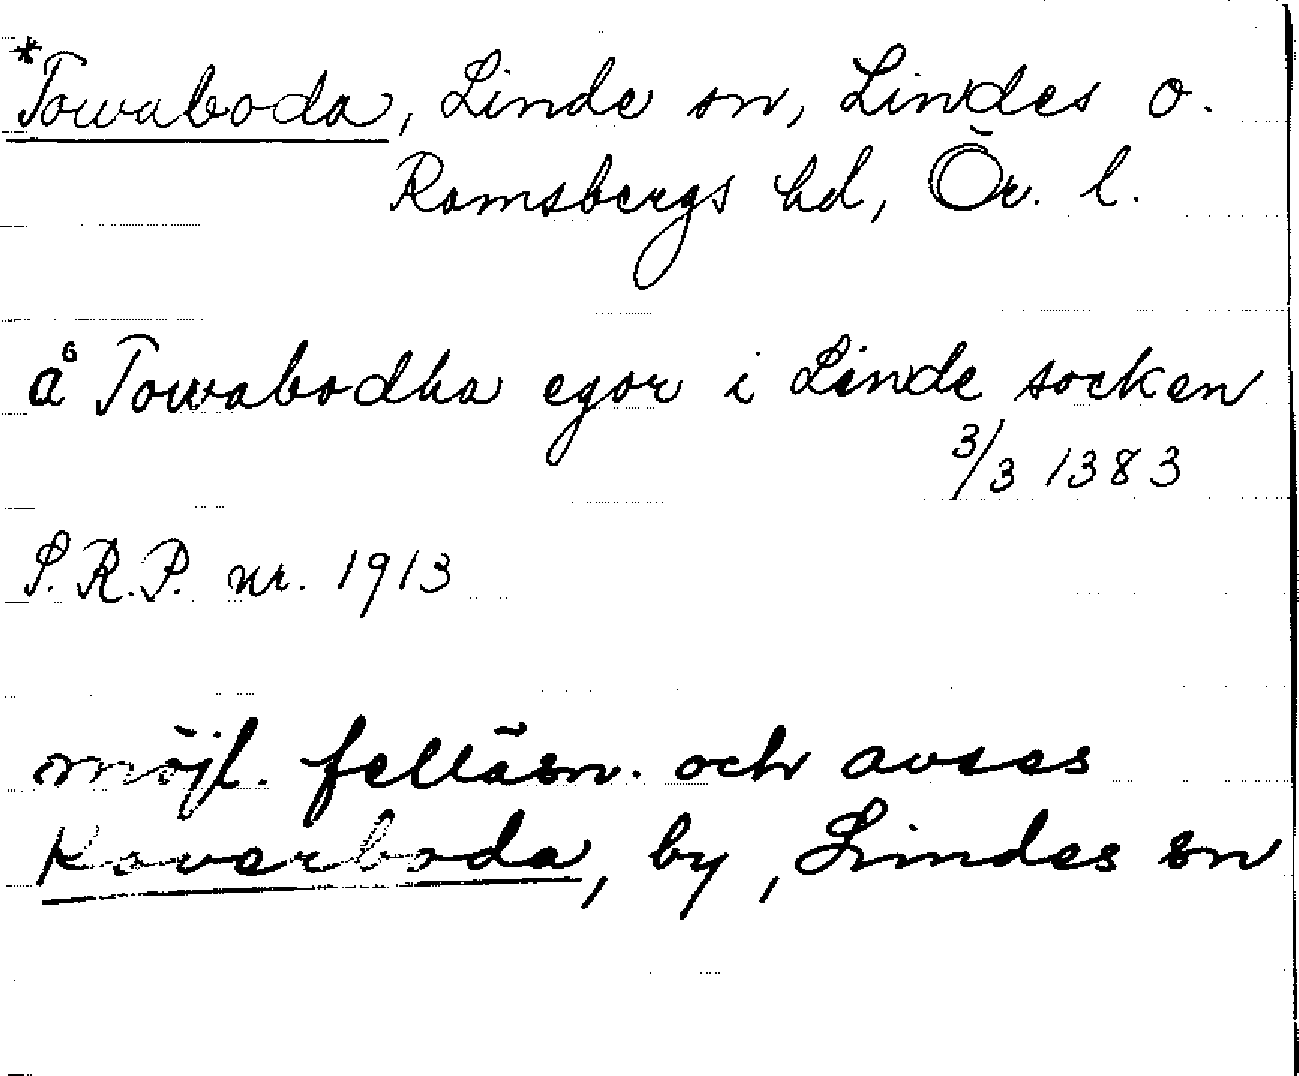 *Towaboda, Linde sn, Lindes o.
Ramsbergs hd, Ör. l.
å Towabodha egor i Linde socken
3/3 1383
S.R.P. nr. 1913
möjl. felläsn. och avses
Koverboda, by, Lindes sn